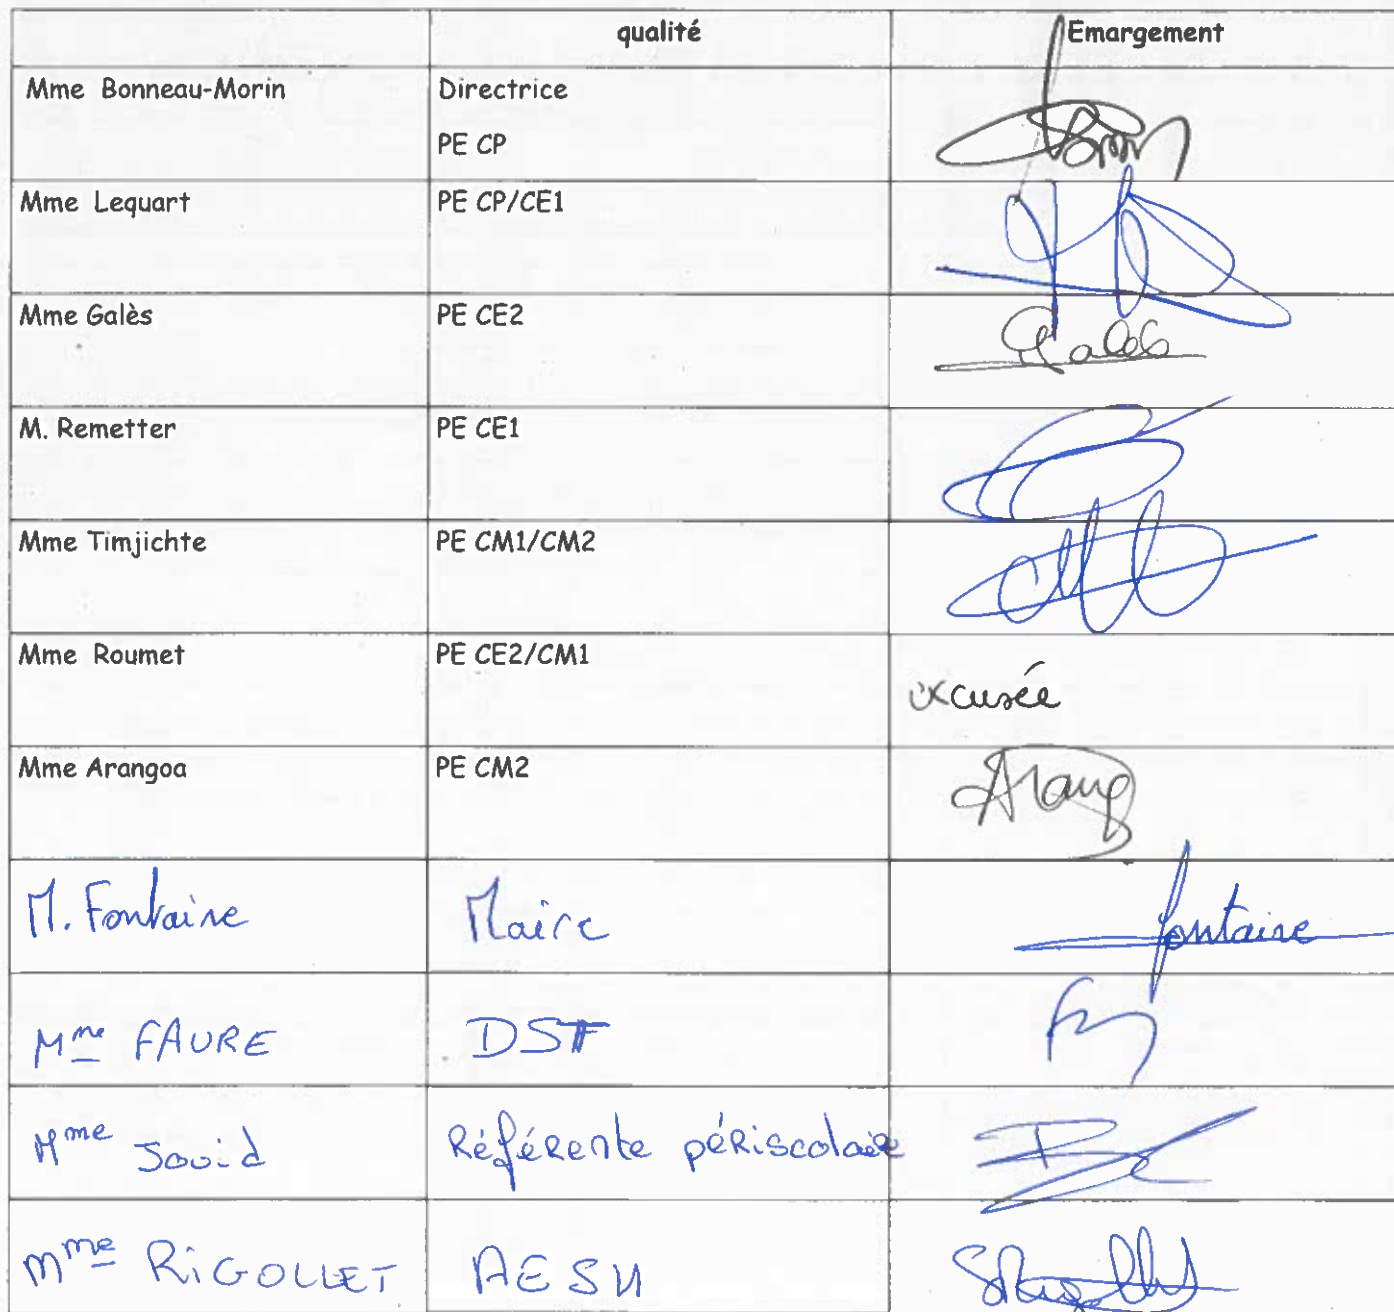 qualité Emargement
Mme Bonneau-Morin Directrice
PE CP
Mme Lequart PE CP/CE1
Mme Galès PE CE2
M. Remetter PE CE1
Mme Timjichte PE CM1/CM2
Mme Roumet PE CE2/CM1 excusée
Mme Arangoa PE CM2 Arang
M. Fontaine Maire fontaine
Mme FAURE
Mme Référente périscolaire
Mme RiGOLLET AESH